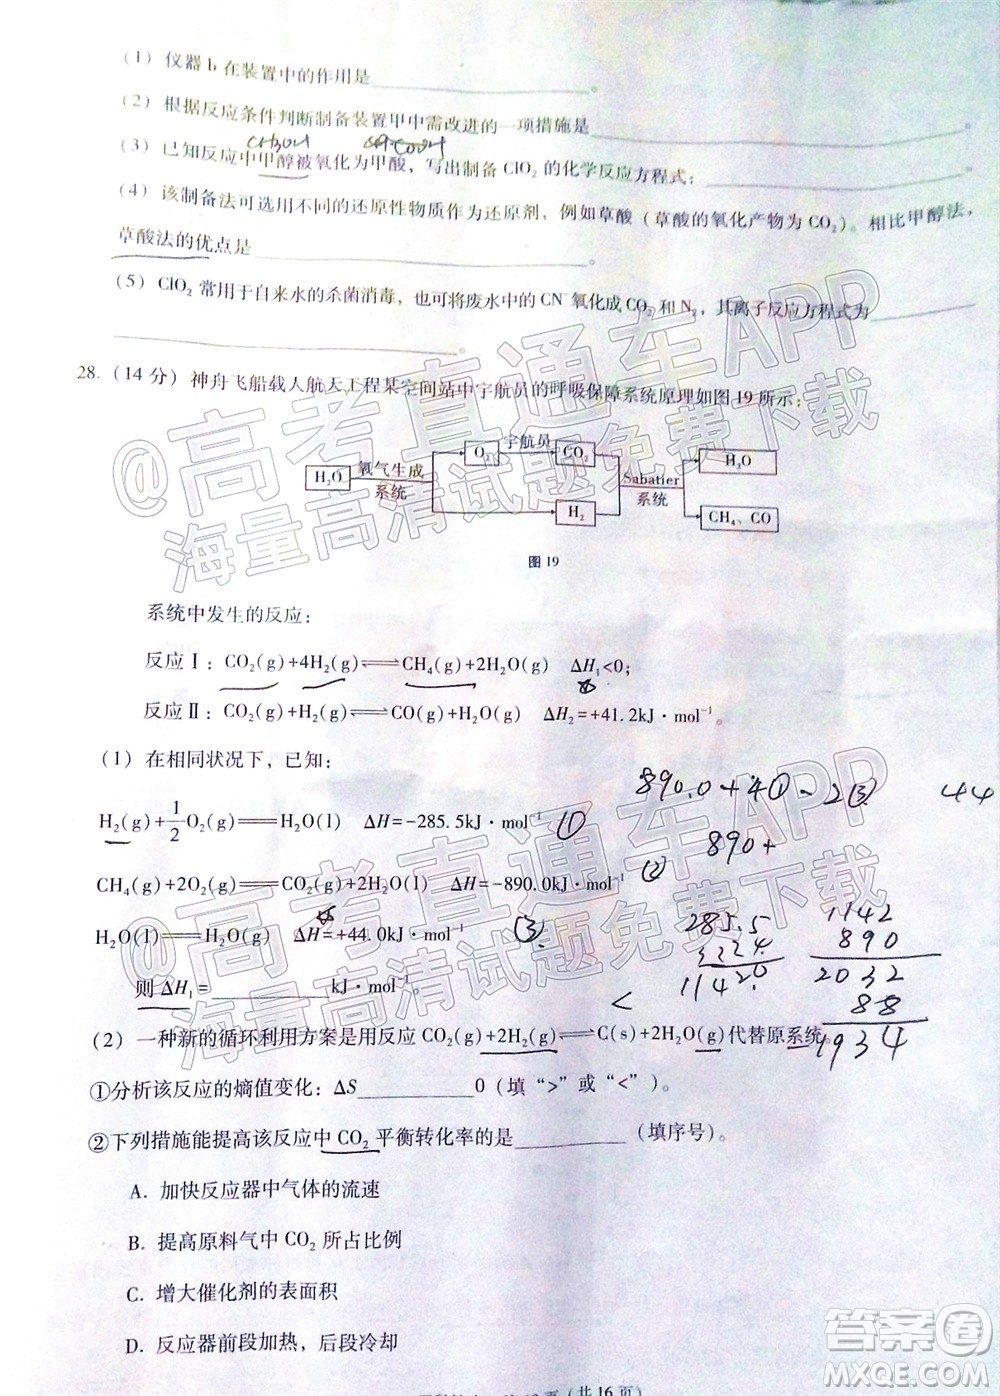 (1) 仪器 b 在装置中的作用是____。
(2) 根据反应条件判断制备装置甲中需改进的一项措施是____。
CH3OH
(3) 已知反应中甲醇被氧化为甲酸，写出制备 ClO₂ 的化学反应方程式：____
(4) 该制备法可选用不同的还原性物质作为还原剂，例如草酸（草酸的氧化产物为 CO₂）。相比甲醇法，
草酸法的优点是____。
(5) ClO₂ 常用于自来水的杀菌消毒，也可将废水中的 CN⁻ 氧化成 CO₂ 和 N₂，其离子反应方程式为____
____。
28.（14 分）神舟飞船载人航天工程某空间站中宇航员的呼吸保障系统原理如图 19 所示：
H₂O 氧气生成系统 O₂ 宇航员 CO₂ H₂ Sabatier 系统 H₂O CH₄、CO
图 19
系统中发生的反应：
反应Ⅰ：CO₂(g)+4H₂(g)⇌CH₄(g)+2H₂O(g) ΔH₁<0；
反应Ⅱ：CO₂(g)+H₂(g)⇌CO(g)+H₂O(g) ΔH₂=+41.2kJ·mol⁻¹。
(1) 在相同状况下，已知：
890.0+4①-2③ 44
H₂(g)+1/2O₂(g)═H₂O(l) ΔH=-285.5kJ·mol⁻¹ ①
890+
CH₄(g)+2O₂(g)═CO₂(g)+2H₂O(l) ΔH=-890.0kJ·mol⁻¹ ②
H₂O(l)═H₂O(g) ΔH=+44.0kJ·mol⁻¹ ③
285.5
1142.0
1142
890
2032
88
1934
则 ΔH₁=____kJ·mol⁻¹。
<
(2) 一种新的循环利用方案是用反应 CO₂(g)+2H₂(g)⇌C(s)+2H₂O(g)代替原系统。
①分析该反应的熵值变化：ΔS____0（填“>”或“<”）。
②下列措施能提高该反应中 CO₂ 平衡转化率的是____（填序号）。
A. 加快反应器中气体的流速
B. 提高原料气中 CO₂ 所占比例
C. 增大催化剂的表面积
D. 反应器前段加热，后段冷却
（共 16 页）
@高考直通车APP
海量高清试题免费下载
@高考直通车APP
海量高清试题免费下载
答案圈
MXQE.COM